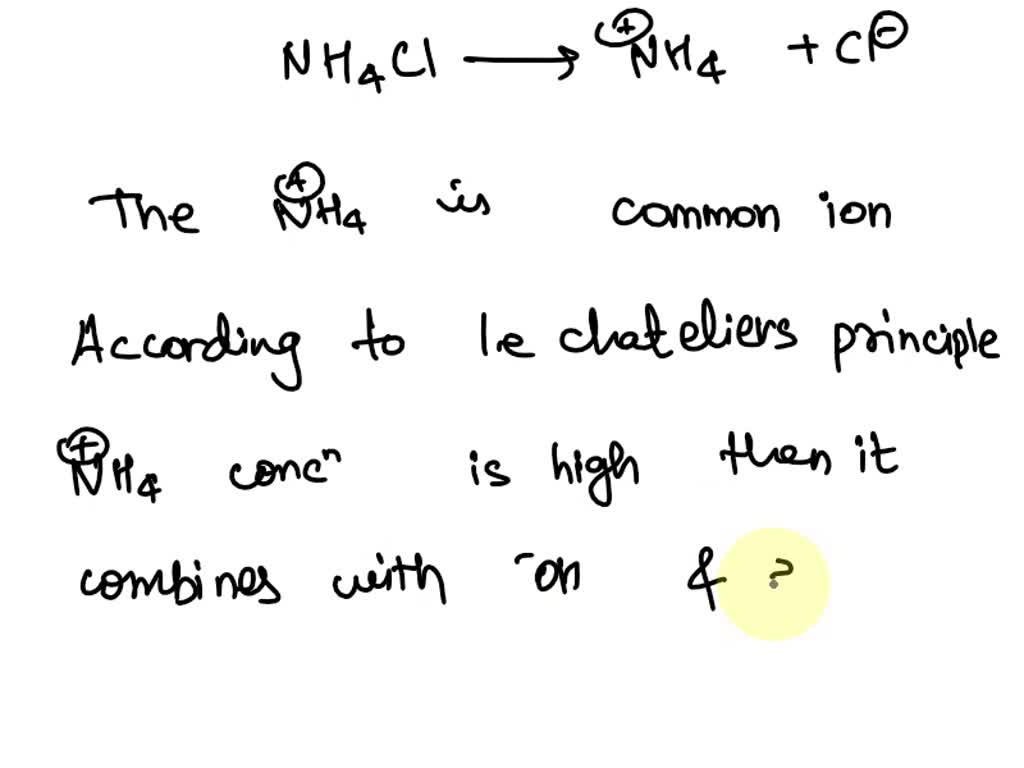 NH₄Cl ⟶ ⊕NH₄ + Cl⊖
The ⊕NH₄ is common ion
According to le chateliers principle
⊕NH₄ concⁿ is high then it
combines with ⁻OH &